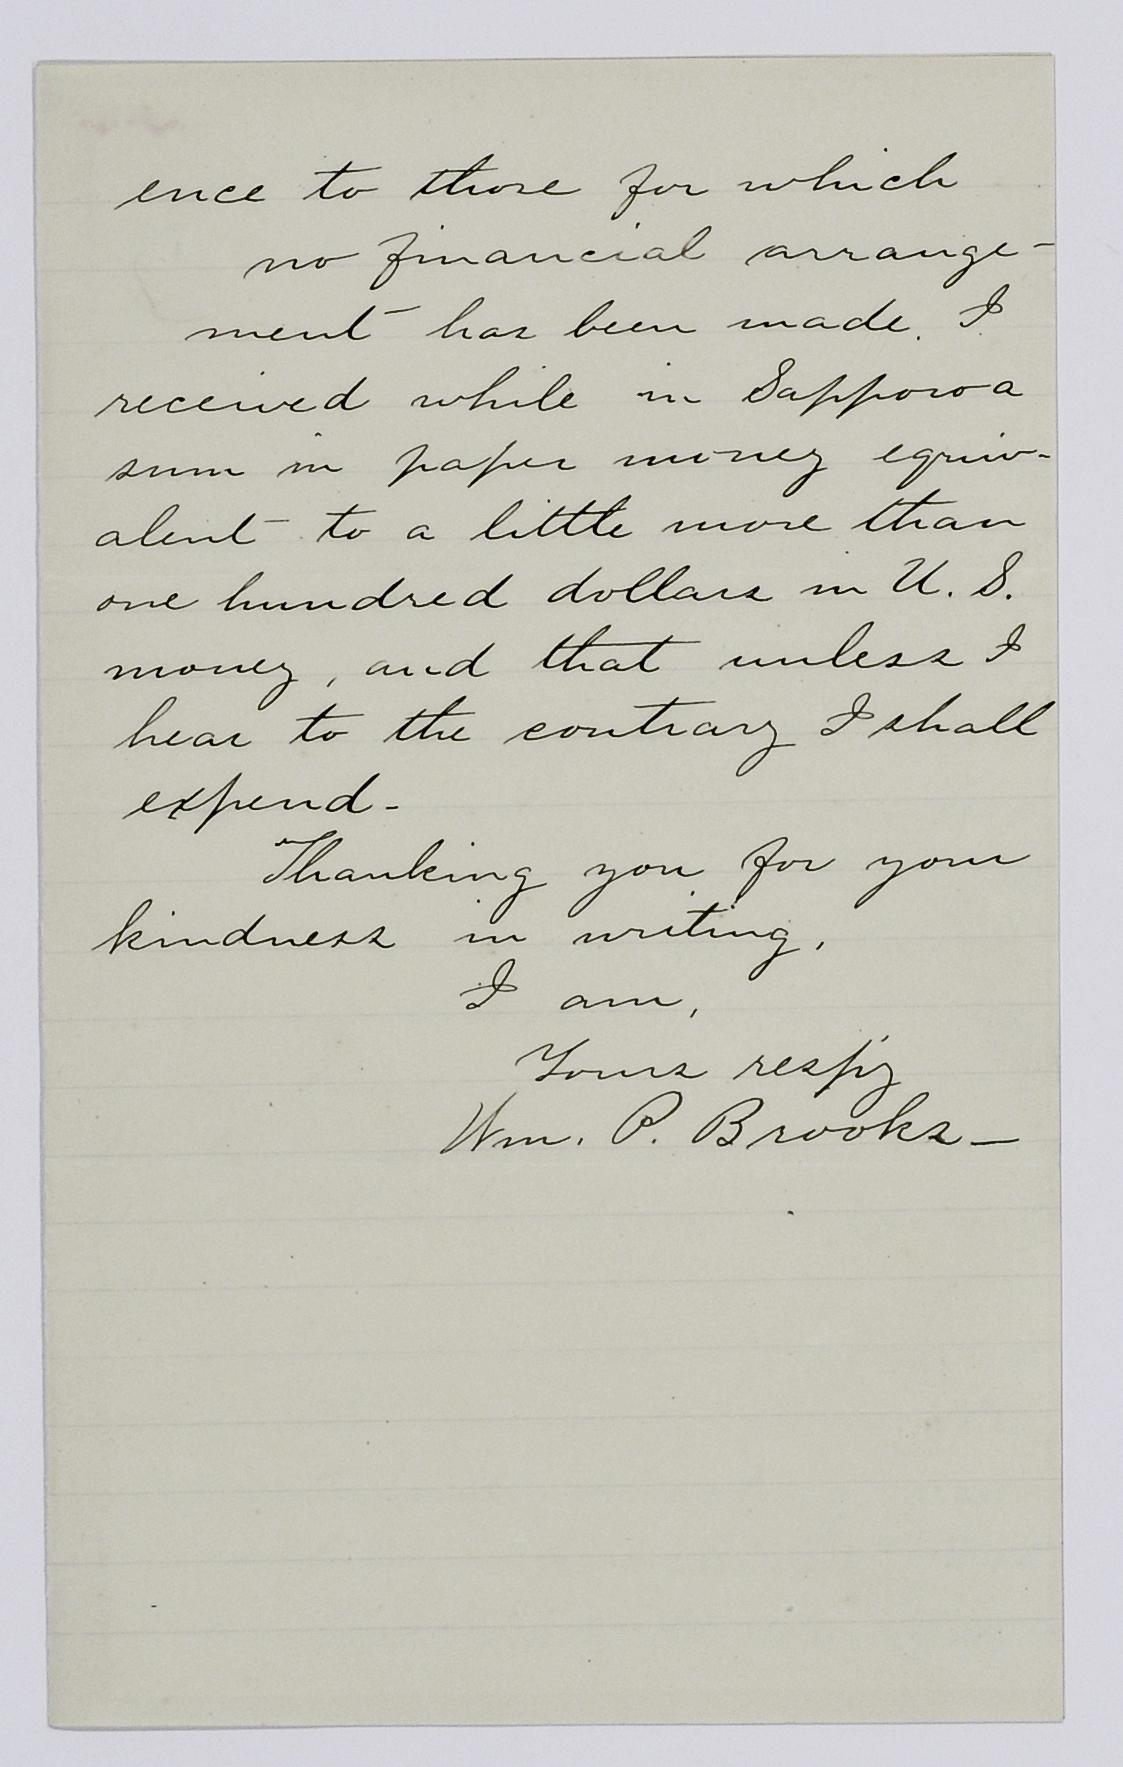 ence to those for which
no financial arrange-
ment has been made. I
received while in Sapporo a
sum in paper money equiv-
alent to a little more than
one hundred dollars in U. S.
money, and that unless I
hear to the contrary I shall
expend-
Thanking you for your
kindness in writing,
I am,
Yours resp'y
Wm. P. Brooks-